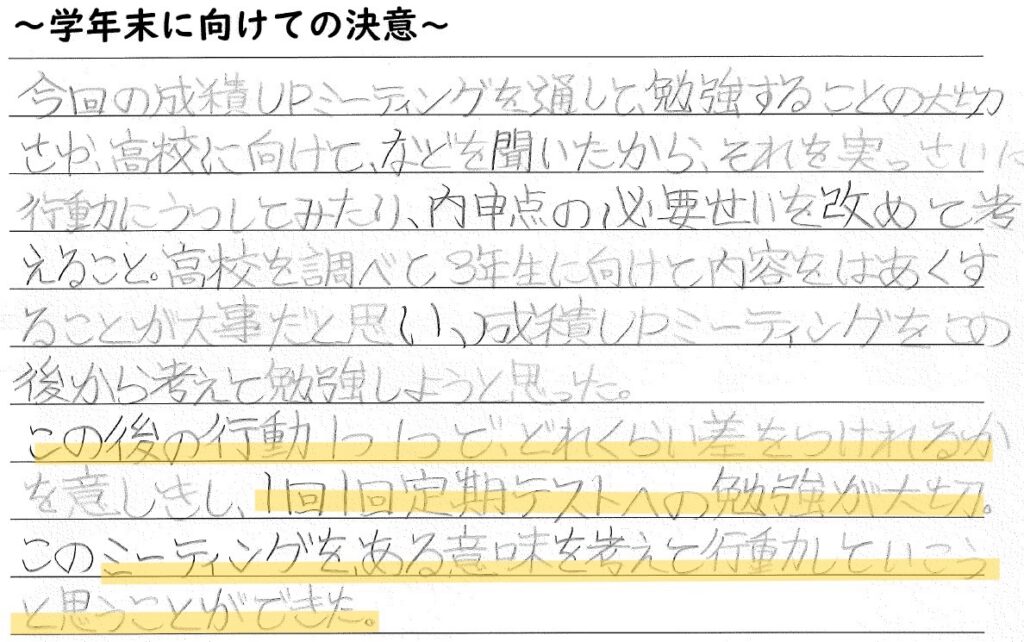 ～学年末に向けての決意～
今回の成績UPミーティングを通して、勉強することの大切
さや、高校に向けて、などを聞いたから、それを実っさいに
行動にうつしてみたり、内申点の必要せいを改めて考
えること。高校を調べて3年生に向けて内容をはあくす
ることが大事だと思い、成績UPミーティングをこの
後から考えて勉強しようと思った。
この後の行動1つ1つで、どれくらい差をつけれるか
を意しきし、1回1回定期テストへの勉強が大切。
このミーティングを、ある意味を考えて行動していこう
と思うことができた。